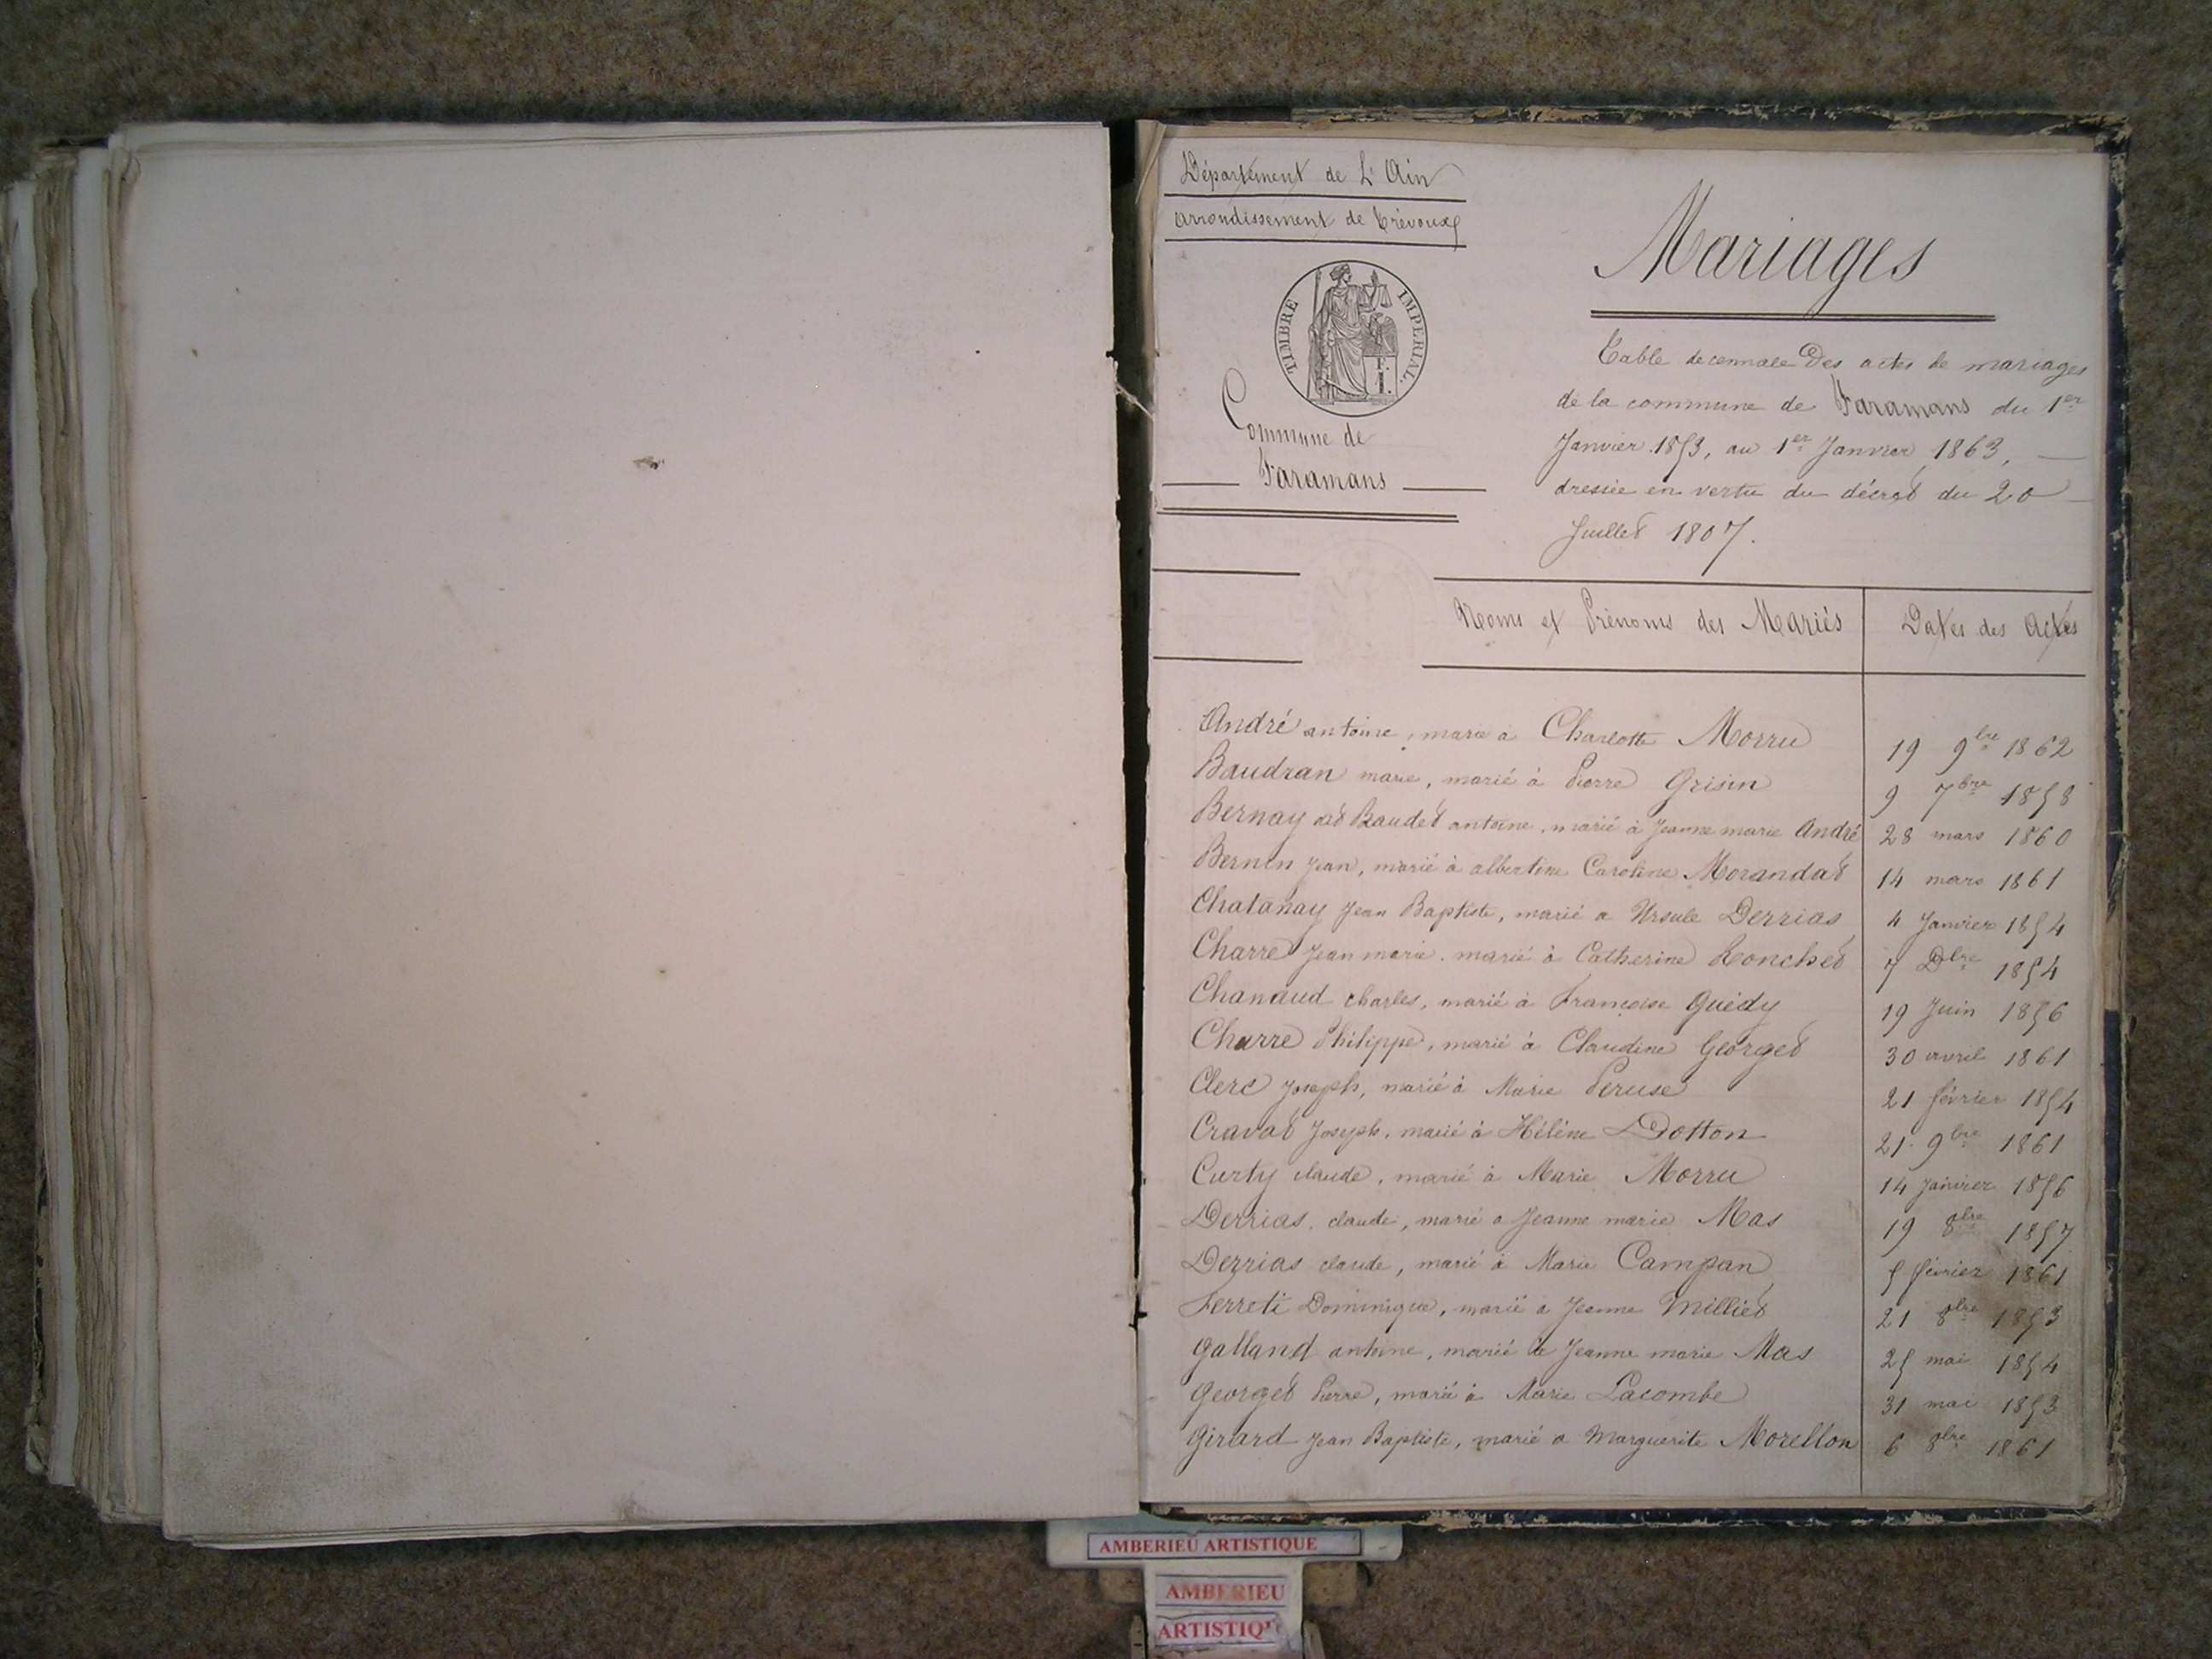 Département de L'Ain
arrondissement de Trévoux
TIMBRE IMPERIAL.
Commune de
Faramans
Mariages
Table decennale Des actes de mariages
de la commune de Faramans du 1er
Janvier 1853, au 1er Janvier 1863,
dressée en vertu du décret du 20
Juillet 1807.
Noms et Prénoms des Mariés Dates des Actes
André antoine, marié à Charlotte Morru 19 9bre 1862
Baudran marie, marié à Pierre Grisin 9 7bre 1858
Bernay dit Baudet antoine, marié à Jeanne marie André 28 mars 1860
Bernin Jean, marié à albertine Caroline Morandat 14 mars 1861
Chatanay Jean Baptiste, marié a Ursule Derrias 4 Janvier 1854
Charre Jean marie, marié à Catherine Ronchet 7 Dbre 1854
Chanaud charles, marié à françoise Guédy 19 Juin 1856
Charre Philippe, marié à Claudine Georget 30 avril 1861
Clerc Joseph, marié à Marie Peruse 21 février 1854
Cravat Joseph, marié à Hélène Dotton 21 9bre 1861
Curty claude, marié à Marie Morru 14 Janvier 1856
Derrias claude, marié a Jeanne marie Mas 19 8bre 1857
Derrias claude, marié à Marie Campan 5 février 1861
Ferreti Dominique, marié a Jeanne Milliet 21 8bre 1853
Galland antoine, marié à Jeanne marie Mas 25 mai 1854
Georget Pierre, marié à Marie Lacombe 31 mai 1853
Girard Jean Baptiste, marié a Marguerite Morellon 6 8bre 1861
AMBERIEU ARTISTIQUE
AMBERIEU
ARTISTIQU